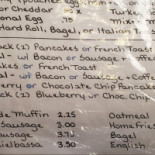 or Cheddar .50 Turke
ional Egg .75 Mixe
Hard Roll, Bagel, or Italian T
ck (2) Pancakes or French Toast
al - w/ Bacon or Sausage
kes or French Toast
al - w/ Bacon or Sausage + Coffe
erry or Chocolate Chip Pancakes
ck (2) Blueberry or Choc. Chip
Muffin 2.25 Oatmeal
Sausage 3.00 Homefries
Sausage Bagel
ielbassa 3.50 English